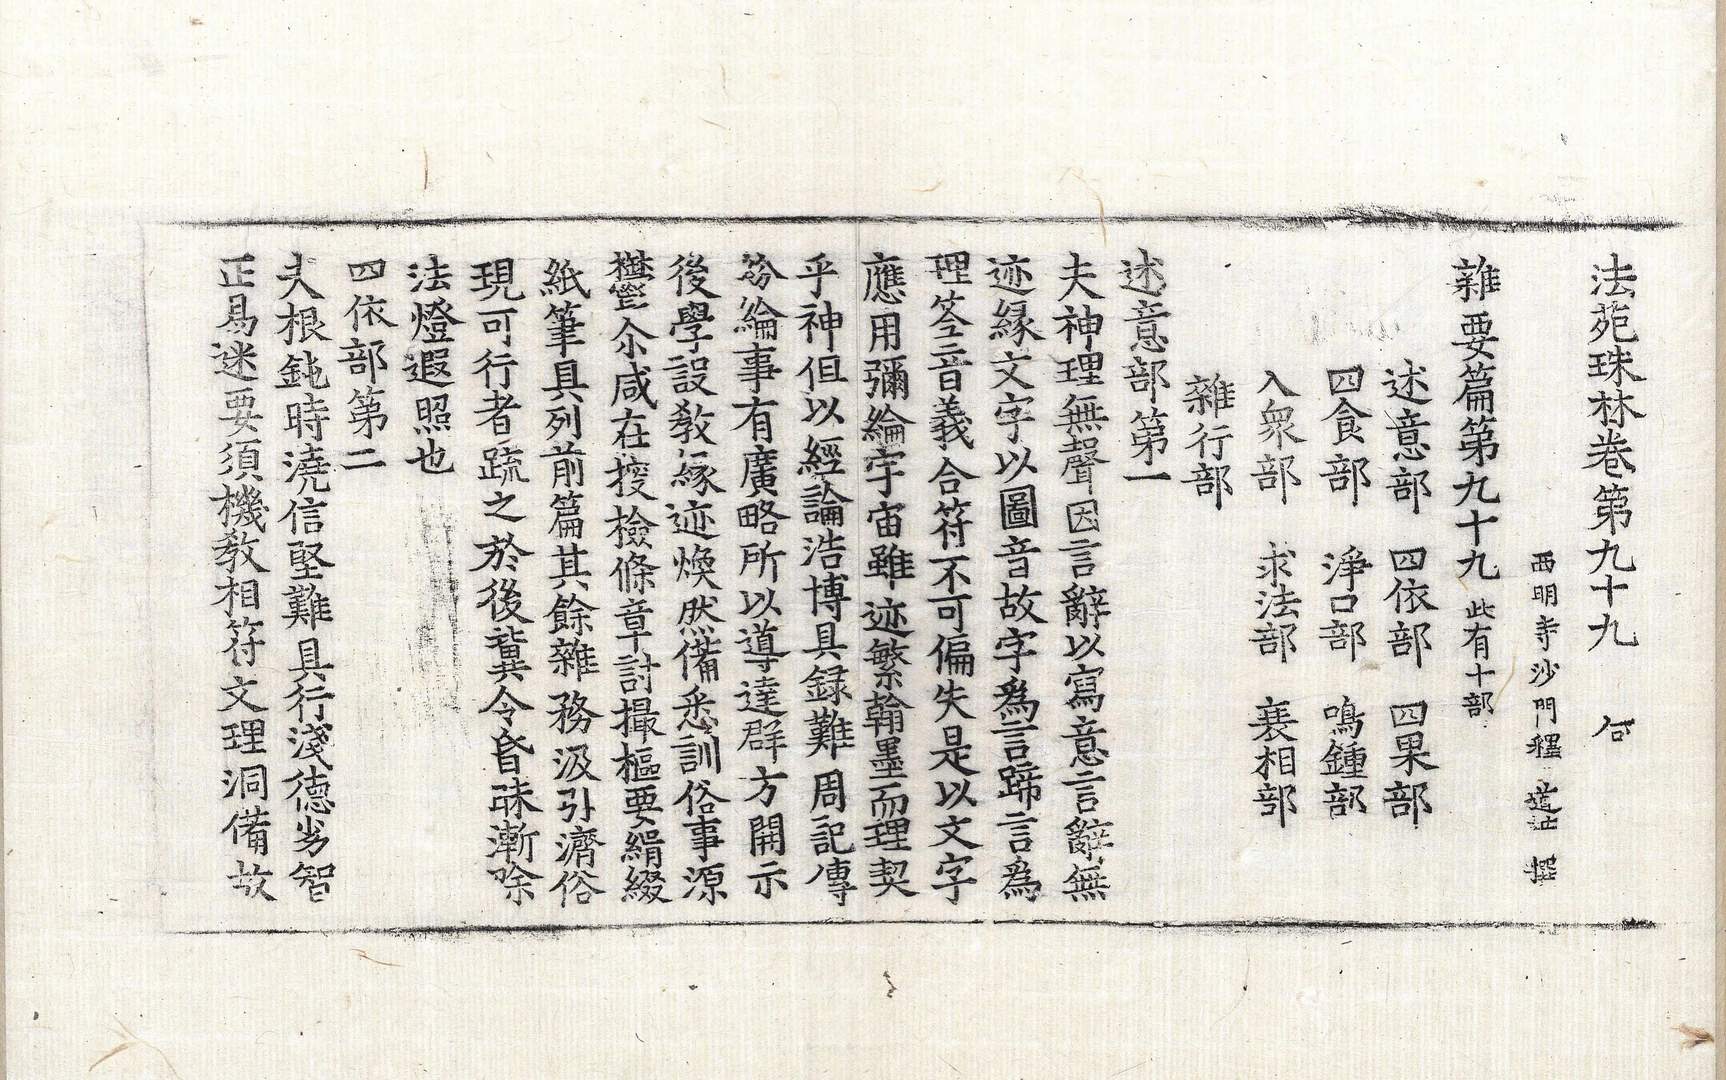 法苑珠林卷第九十九
西明寺沙門釋道世撰
雜要篇第九十九 此有十部
述意部 四依部 四果部
四食部 淨口部 鳴鍾部
入衆部 求法部 衰相部
雜行部
述意部第一
夫神理無聲因言辭以寫意言辭無
迹緣文字以圖音故字爲言蹄言爲
理筌音義合符不可偏失是以文字
應用彌綸宇宙雖迹繁翰墨而理契
乎神但以經論浩博具録難周記傳
紛綸事有廣略所以導達群方開示
後學設教緣迹煥然備悉訓俗事源
欝爾咸在搜檢條章討撮樞要緝綴
紙筆具列前篇其餘雜務汲引濟俗
現可行者疏之於後冀令昏昧漸除
法燈遐照也
四依部第二
夫根鈍時澆信堅難具行淺德劣智
正易迷要須機教相符文理洞備故